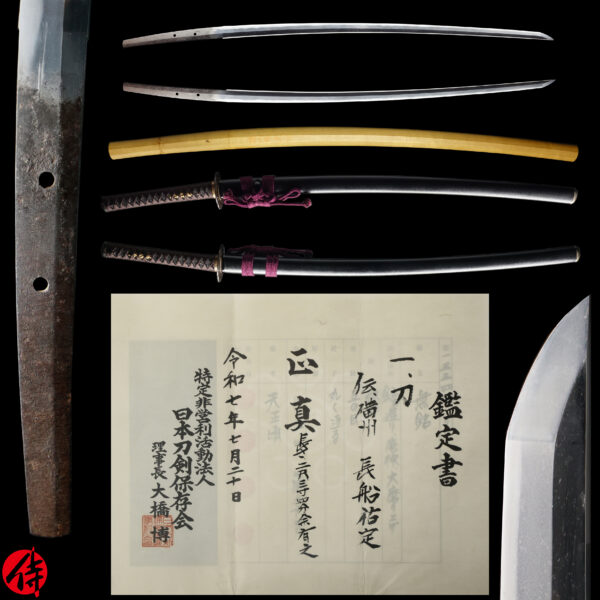 鑑定書
一、刀
伝備州 長船祐定
正真 長サ二尺三寸四分余有之
令和七年七月二十日
特定非営利活動法人
日本刀剣保存会
理事長 大橋 博
侍